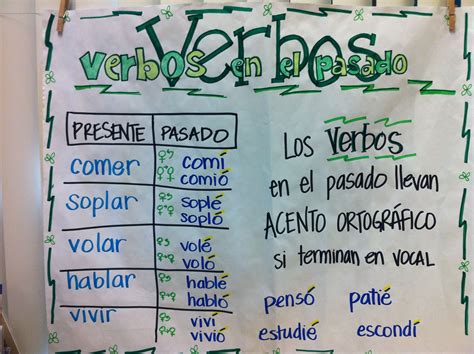 Verbos
verbos en el pasado
PRESENTE PASADO
comer comí
comió
soplar soplé
sopló
volar volé
voló
hablar hablé
habló
vivir viví
vivió
Los Verbos
en el pasado llevan
ACENTO ORTOGRÁFICO
si terminan en VOCAL
pensó patié
estudié escondí